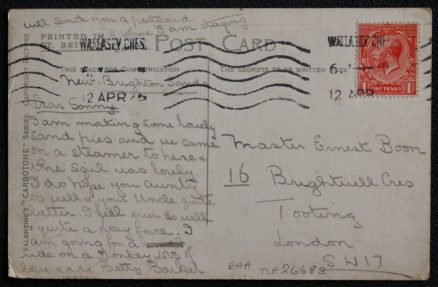 will send you a postcard
where I am staying
PRINTED IN
POST CARD
WALLASEY CHES.
12 APR 25
WALLASEY CHES.
12 APR
ONE PENNY
THIS SPACE FOR COMMUNICATION
THE ADDRESS TO BE WRITTEN
VALENTINE'S "CARBOTONE" SERIES
New Brighton Sands
Dear Sonny
I am making some lovely
sand pies and we came
on a steamer to here &
the sail was lovely
I do hope you Aunty
is well & your Uncle quite
better. I feel ever so well
& quite a rosy face. I
am going for a
ride on a Donkey. Lots of
love xxxx Betty Barker
Master Ernest Boon
16 Brightwell Cres
Tooting
London
SW17
26688